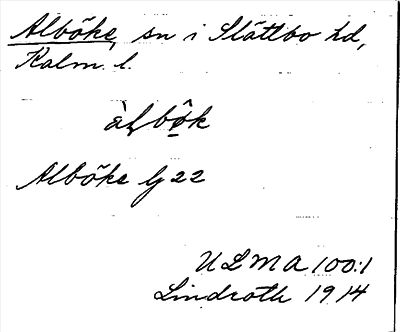 Alböke, sn i Slättbo hd,
Kalm. l.
àlbö̀k
Alböke lj 22
ULMA 100:1
Lindroth 1914